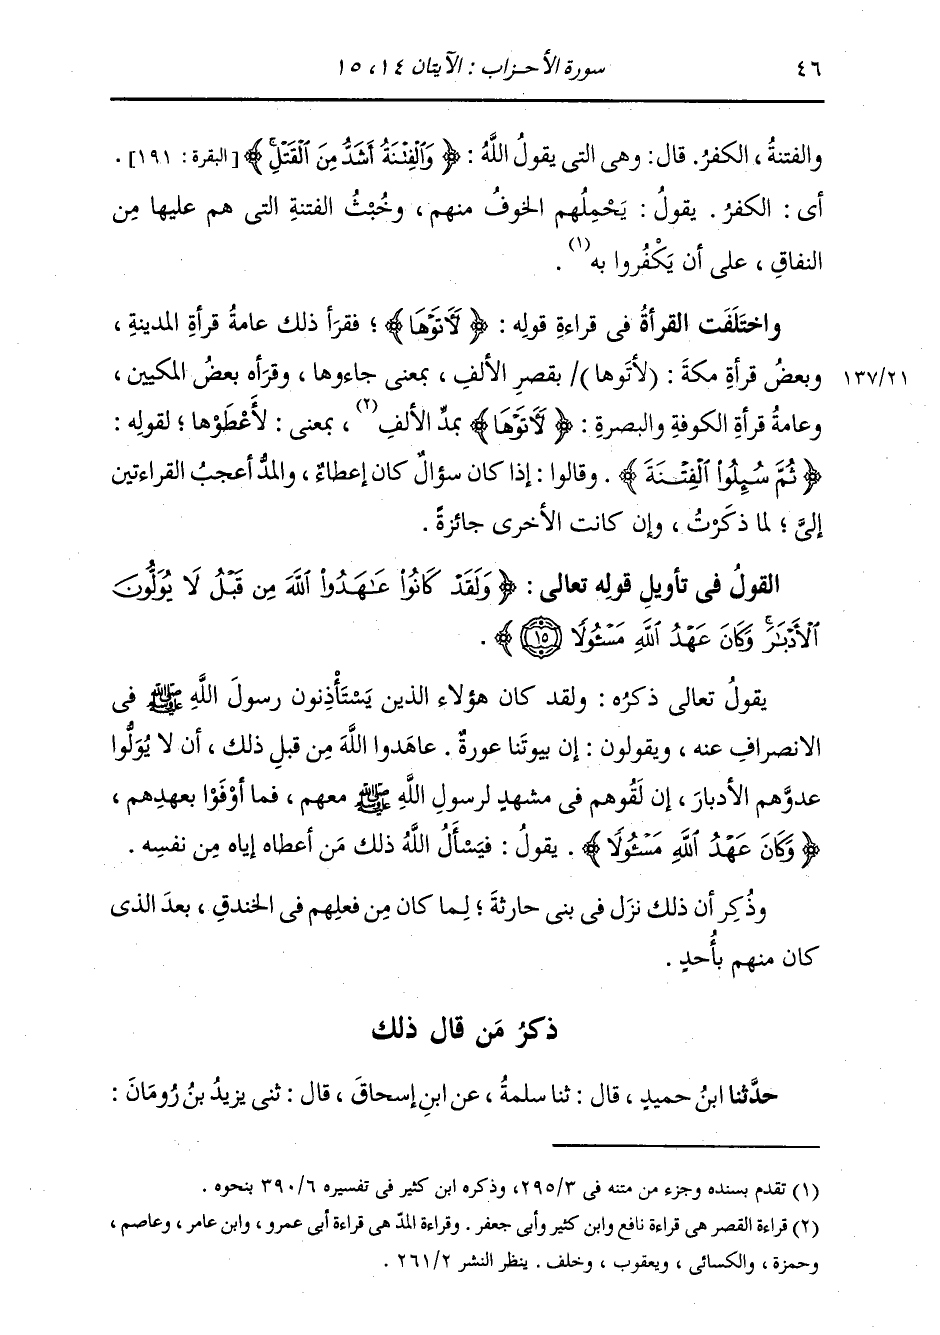 ٤٦ سورة الأحزاب : الآيتان ١٤، ١٥
والفتنةُ ، الكفرُ. قال: وهى التى يقولُ اللَّهُ : ﴿ وَٱلْفِتْنَةُ أَشَدُّ مِنَ ٱلْقَتْلِۚ ﴾ [ البقرة : ١٩١] .
أى : الكفرُ . يقولُ : يَحْمِلُهم الخوفُ منهم ، وخُبْثُ الفتنةِ التى هم عليها مِن
النفاقِ ، على أن يَكْفُروا به(١) .
واختَلَفَت القرأةُ فى قراءةِ قولِه : ﴿ لَآتَوْهَا ﴾ ؛ فقرَأ ذلك عامةُ قرأةِ المدينةِ ،
١٣٧/٢١ وبعضُ قرأةِ مكةَ : (لأتَوها )/ بقصرِ الألفِ ، بمعنى جاءوها ، وقرَأه بعضُ المكيين ،
وعامةُ قرأةِ الكوفةِ والبصرةِ : ﴿ لَآتَوْهَا ﴾ بمدِّ الألفِ(٢) ، بمعنى : لأَعْطَوْها ؛ لقولِه :
﴿ ثُمَّ سُئِلُوا۟ ٱلْفِتْنَةَ ﴾ . وقالوا : إذا كان سؤالٌ كان إعطاءٌ ، والمدُّ أعجبُ القراءتين
إلىَّ ؛ لما ذكَرْتُ ، وإن كانت الأخرى جائزةً .
القولُ فى تأويلِ قولِه تعالى : ﴿ وَلَقَدْ كَانُوا۟ عَـٰهَدُوا۟ ٱللَّهَ مِن قَبْلُ لَا يُوَلُّونَ
ٱلْأَدْبَـٰرَۚ وَكَانَ عَهْدُ ٱللَّهِ مَسْـُٔولًا ١٥ ﴾ .
يقولُ تعالى ذكرُه : ولقد كان هؤلاء الذين يَسْتَأْذِنون رسولَ اللَّهِ ﷺ فى
الانصرافِ عنه ، ويقولون : إن بيوتَنا عورةٌ . عاهَدوا اللَّهَ مِن قبلِ ذلك ، أن لا يُوَلُّوا
عدوَّهم الأدبارَ ، إن لَقُوهم فى مشهدٍ لرسولِ اللَّهِ ﷺ معهم ، فما أوْفَوْا بعهدِهم ،
﴿ وَكَانَ عَهْدُ ٱللَّهِ مَسْـُٔولًا ﴾ . يقولُ : فيَسْأَلُ اللَّهُ ذلك مَن أعطاه إياه مِن نفسِه .
وذُكِر أن ذلك نزَل فى بنى حارثةَ ؛ لِما كان مِن فعلِهم فى الخندقِ ، بعدَ الذى
كان منهم بأُحدٍ .
ذكرُ مَن قال ذلك
حدَّثنا ابنُ حميدٍ ، قال : ثنا سلمةُ ، عن ابنِ إسحاقَ ، قال : ثنى يزيدُ بنُ رُومَانَ :
(١) تقدم بسنده وجزء من متنه فى ٢٩٥/٣، وذكره ابن كثير فى تفسيره ٣٩٠/٦ بنحوه .
(٢) قراءة القصر هى قراءة نافع وابن كثير وأبى جعفر . وقراءة المدّ هى قراءة أبى عمرو ، وابن عامر ، وعاصم ،
وحمزة ، والكسائى ، ويعقوب ، وخلف . ينظر النشر ٢٦١/٢ .